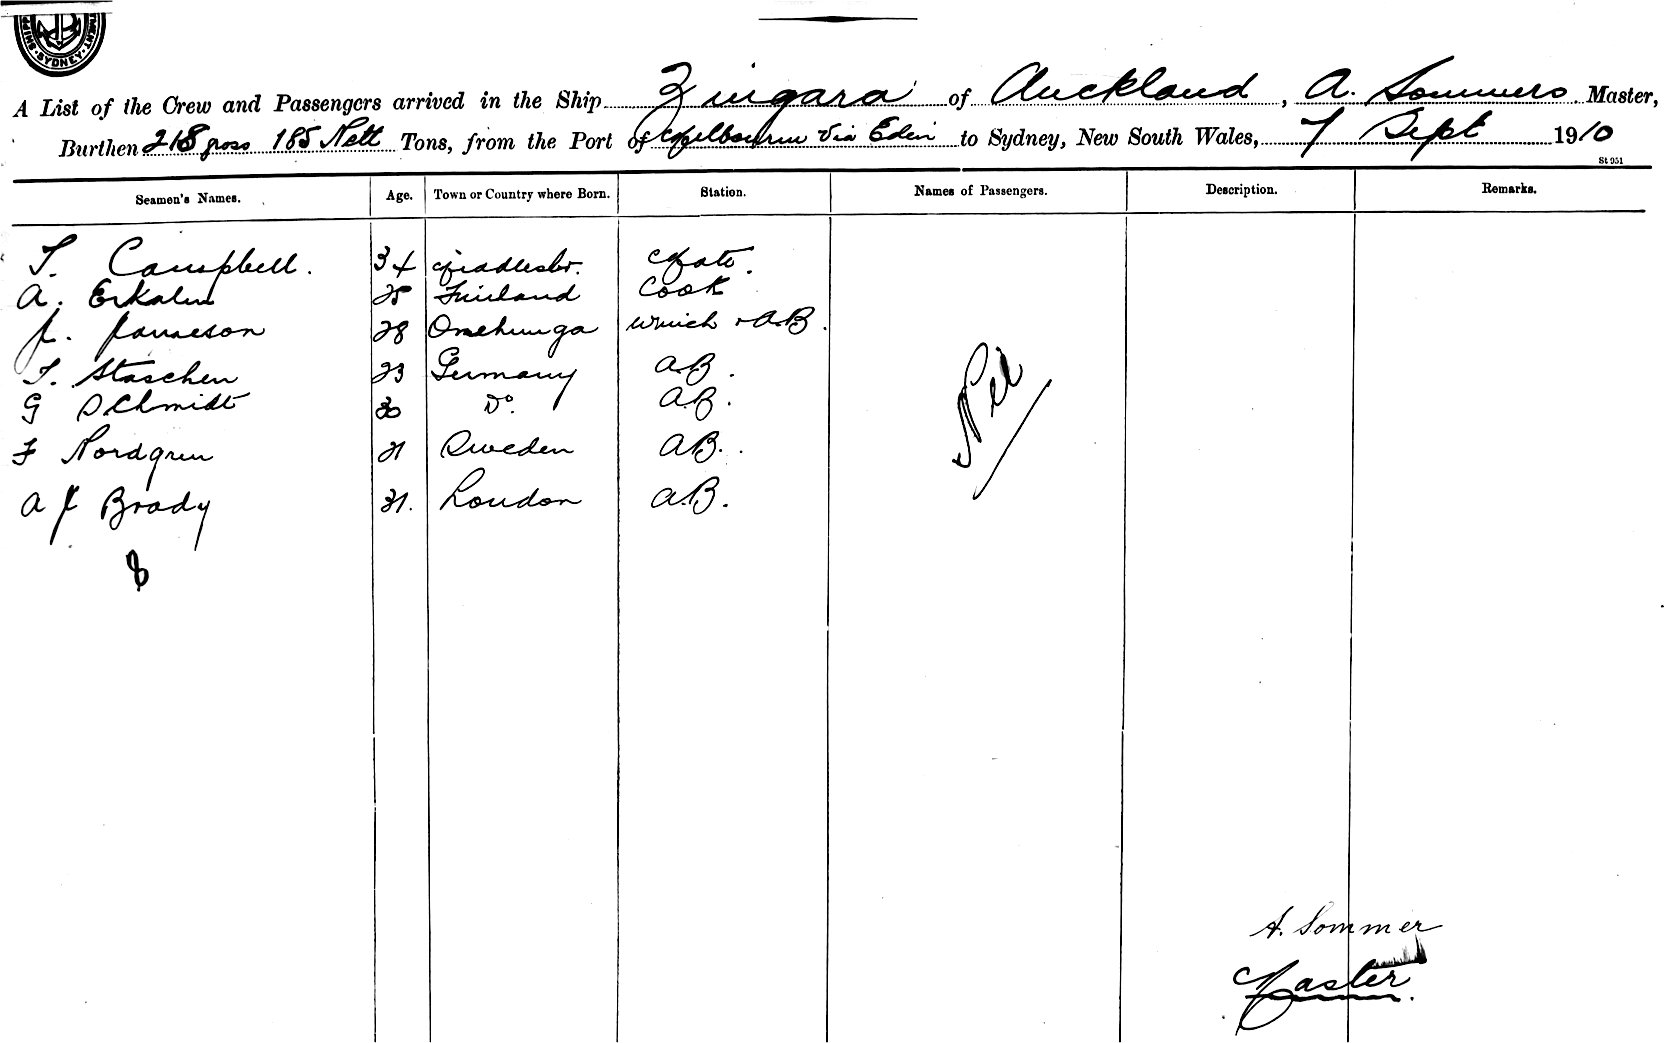 SHIPP MENT. SYDNEY.
A List of the Crew and Passengers arrived in the Ship Zingara of Auckland, A. Sommers Master,
Burthen 218 gross 185 Nett Tons, from the Port of Melbourne Via Eden to Sydney, New South Wales, 7 Sept 1910
St 951
Seamen's Names. Age. Town or Country where Born. Station. Names of Passengers. Description. Remarks.
T. Campbell. 34 Middlesbr. Mate.
A. Erkalin 25 Finland Cook
J. Jameson 28 Onehunga Winch + A.B.
T. Staschen 23 Germany A.B.
G Schmidt 30 Do. A.B.
F Nordgren 21 Sweden A.B.
A J Brady 31. London A.B.
8
Nil
A. Sommer
Master.